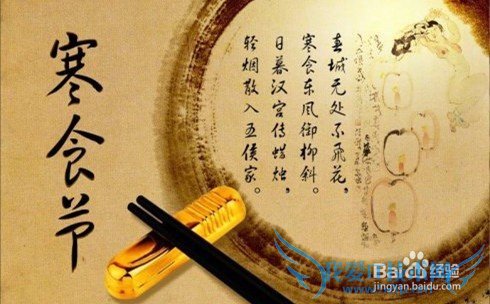 寒食节
春城无处不飞花，
寒食东风御柳斜。
日暮汉宫传蜡烛，
轻烟散入五侯家。
Baidu 经验
jingyan.baidu.com